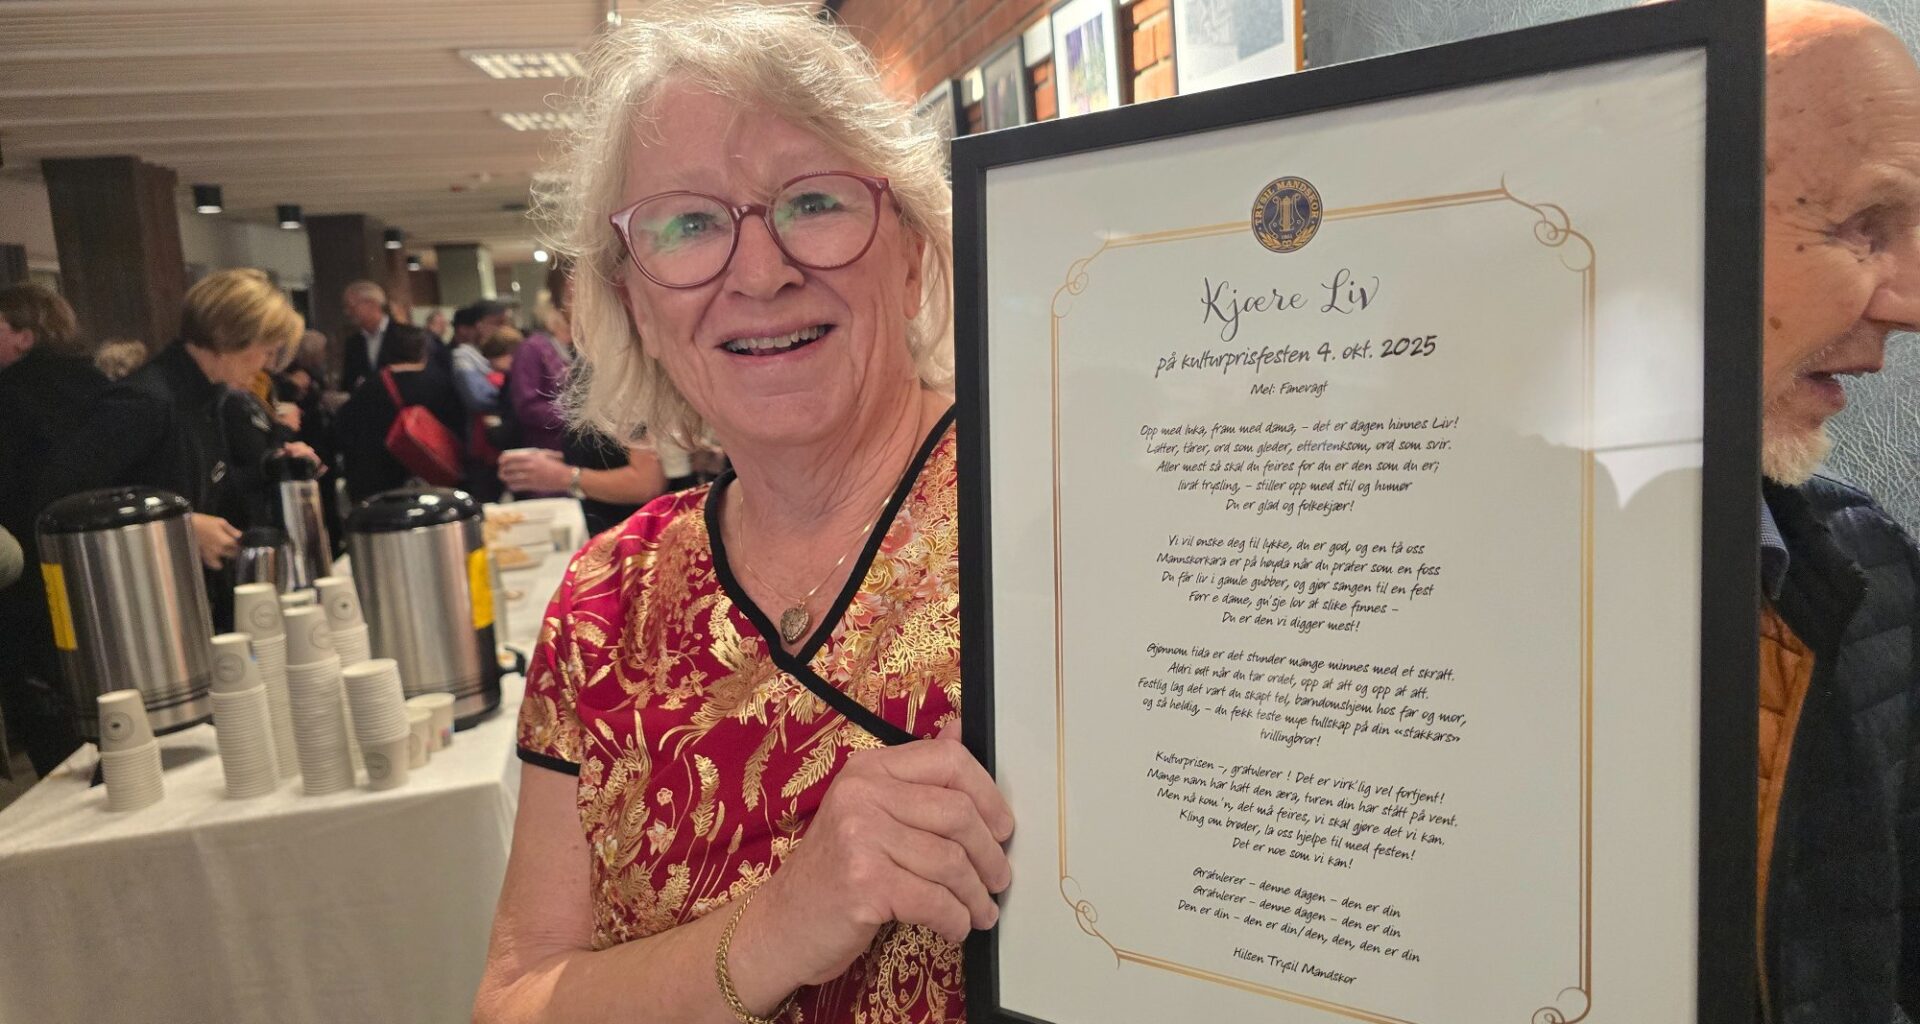 TRYSIL MANDSKOR
Kjære Liv
på kulturprisfesten 4. okt. 2025
Mel: Fanevagt
Opp med luka, fram med dama, – det er dagen hinnes Liv!
Latter, tårer, ord som gleder, ettertenksom, ord som svir.
Aller mest så skal du feires for du er den som du er;
livat trysling, – stiller opp med stil og humør
Du er glad og folkekjær!
Vi vil ønske deg til lykke, du er god, og en tå oss
Mannskorkara er på høyda når du prater som en foss
Du får liv i gamle gubber, og gjør sangen til en fest
Førr e dame, gu'sje lov at slike finnes –
Du er den vi digger mest!
Gjønnom tida er det stunder mange minnes med et skratt.
Aldri ødt når du tar ordet, opp at att og opp at att.
Festlig lag det vart du skapt tel, barndomshjem hos far og mor,
og så heldig, – du fekk teste mye tullskap på din «stakkars»
tvillingbror!
Kulturprisen –, gratulerer ! Det er virk'lig vel fortjent!
Mange navn har hatt den æra, turen din har stått på vent.
Men nå kom'n, det må feires, vi skal gjøre det vi kan.
Kling om brøder, la oss hjelpe til med festen!
Det er noe som vi kan!
Gratulerer – denne dagen – den er din
Gratulerer – denne dagen – den er din
Den er din – den er din/den, den, den er din
Hilsen Trysil Mandskor